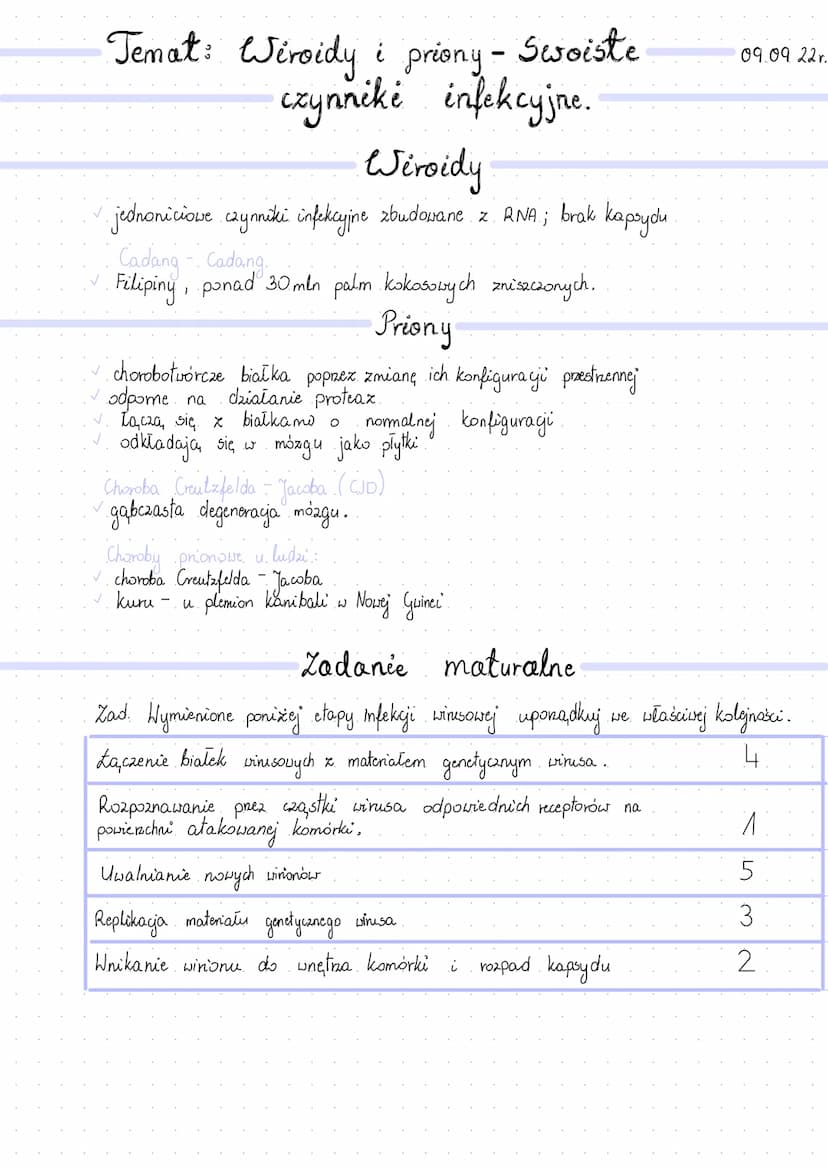 Temat: Wiroidy i priony - Swoiste
09.09 22r.
czynniki infekcyjne.
Wiroidy
✓ jednoniciowe czynniki infekcyjne zbudowane z RNA; brak kapsydu
Cadang - Cadang
✓ Filipiny, ponad 30 mln palm kokosowych zniszczonych.
Priony
✓ chorobotwórcze białka poprzez zmianę ich konfiguracji przestrzennej
✓ odporne na działanie proteaz
✓ łączą się z białkami o normalnej konfiguracji
✓ odkładają się w mózgu jako płytki
Choroba Creutzfelda - Jacoba (CJD)
✓ gąbczasta degeneracja mózgu.
Choroby prionowe u ludzi:
✓ choroba Creutzfelda - Jacoba
✓ kuru - u plemion kanibali w Nowej Gwinei
Zadanie maturalne
Zad. Wymienione poniżej etapy infekcji wirusowej uporządkuj we właściwej kolejności.
Łączenie białek wirusowych z materiałem genetycznym wirusa. 4
Rozpoznawanie przez cząstki wirusa odpowiednich receptorów na
powierzchni atakowanej komórki. 1
Uwalnianie nowych wirionów 5
Replikacja materiału genetycznego wirusa 3
Wnikanie wirionu do wnętrza komórki i rozpad kapsydu 2